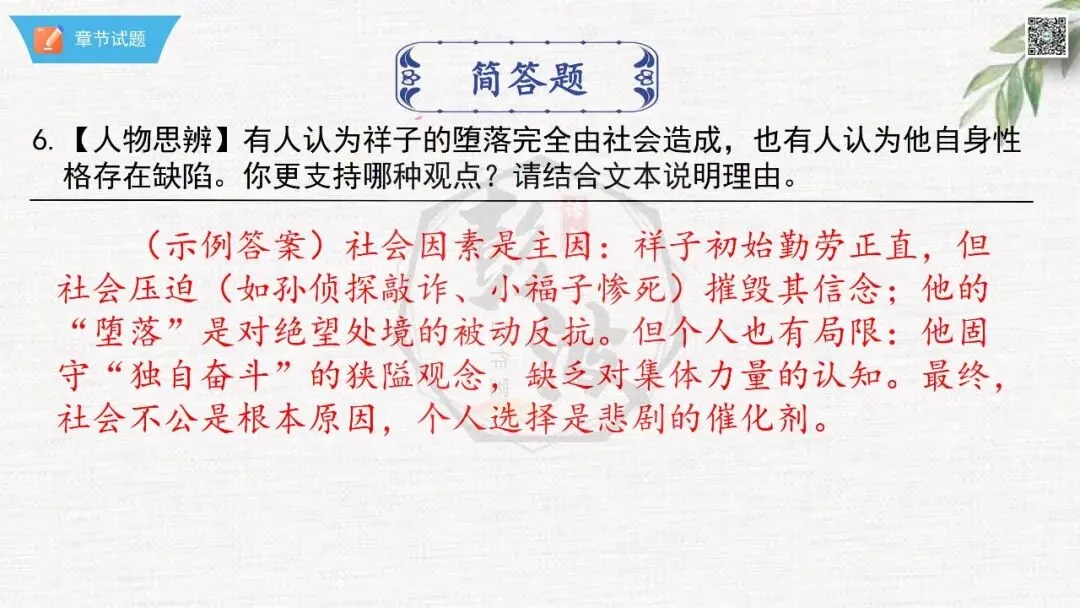 章节试题
简答题
6.【人物思辨】有人认为祥子的堕落完全由社会造成，也有人认为他自身性
格存在缺陷。你更支持哪种观点？请结合文本说明理由。
（示例答案）社会因素是主因：祥子初始勤劳正直，但
社会压迫（如孙侦探敲诈、小福子惨死）摧毁其信念；他的
“堕落”是对绝望处境的被动反抗。但个人也有局限：他固
守“独自奋斗”的狭隘观念，缺乏对集体力量的认知。最终，
社会不公是根本原因，个人选择是悲剧的催化剂。